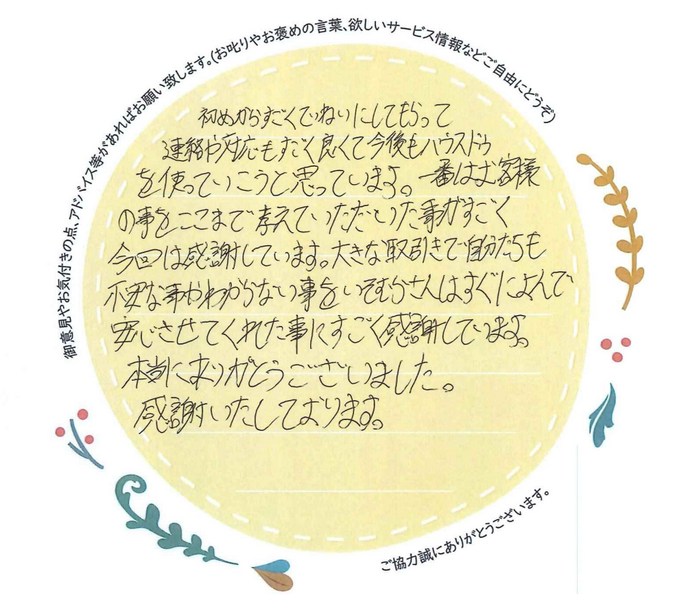 御意見やお気付きの点、アドバイス等があればお願い致します。(お叱りやお褒めの言葉、欲しいサービス情報などご自由にどうぞ)
初めからすごくていねいにしてもらって
連絡や対応もすごく良くて今後もハウスドゥ
を使っていこうと思っています。一番はお客様
の事をここまで考えていただいた事がすごく
今回は感謝しています。大きな取引きで自分たちも
不安な事かわからない事をいそむらさんはすぐによんで
安心させてくれた事にすごく感謝しています。
本当にありがとうございました。
感謝いたしております。
ご協力誠にありがとうございます。